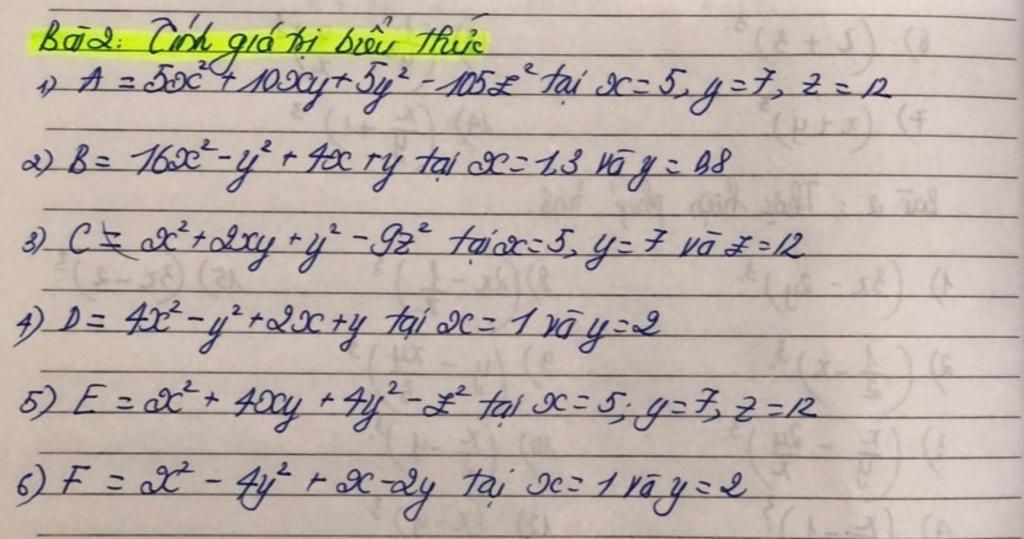 Bài 2: Tính giá trị biểu thức
1) A = 5x² + 10xy + 5y² - 105z² tại x = 5, y = 7, z = 12
2) B = 16x² - y² + 4x + y tại x = 1,3 và y = 0,8
3) C = x² + 2xy + y² - 9z² tại x = 5, y = 7 và z = 12
4) D = 4x² - y² + 2x + y tại x = 1 và y = 2
5) E = x² + 4xy + 4y² - z² tại x = 5; y = 7, z = 12
6) F = x² - 4y² + x - 2y tại x = 1 và y = 2